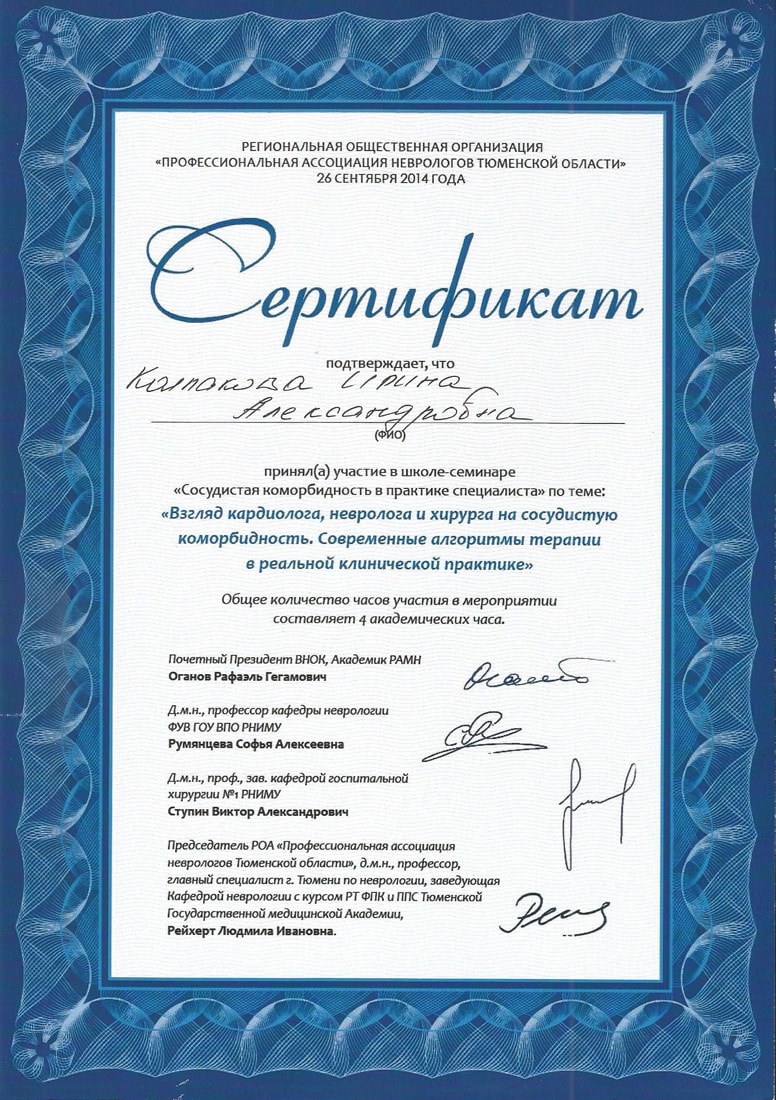 РЕГИОНАЛЬНАЯ ОБЩЕСТВЕННАЯ ОРГАНИЗАЦИЯ
«ПРОФЕССИОНАЛЬНАЯ АССОЦИАЦИЯ НЕВРОЛОГОВ ТЮМЕНСКОЙ ОБЛАСТИ»
26 СЕНТЯБРЯ 2014 ГОДА
Сертификат
подтверждает, что
Колпакова Ирина
Александровна
(ФИО)
принял(а) участие в школе-семинаре
«Сосудистая коморбидность в практике специалиста» по теме:
«Взгляд кардиолога, невролога и хирурга на сосудистую
коморбидность. Современные алгоритмы терапии
в реальной клинической практике»
Общее количество часов участия в мероприятии
составляет 4 академических часа.
Почетный Президент ВНОК, Академик РАМН
Оганов Рафаэль Гегамович
Д.м.н., профессор кафедры неврологии
ФУВ ГОУ ВПО РНИМУ
Румянцева Софья Алексеевна
Д.м.н., проф., зав. кафедрой госпитальной
хирургии №1 РНИМУ
Ступин Виктор Александрович
Председатель РОА «Профессиональная ассоциация
неврологов Тюменской области», д.м.н., профессор,
главный специалист г. Тюмени по неврологии, заведующая
Кафедрой неврологии с курсом РТ ФПК и ППС Тюменской
Государственной медицинской Академии,
Рейхерт Людмила Ивановна.